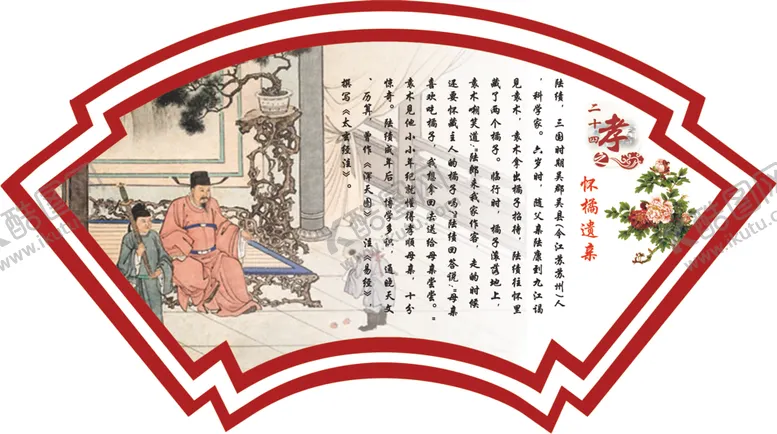 二十四孝之
怀橘遗亲
陆绩，三国时期吴郡吴县(今江苏苏州)人
，科学家。六岁时，随父亲陆康到九江谒
见袁术，袁术拿出橘子招待，陆绩往怀里
藏了两个橘子。临行时，橘子滚落地上，
袁术嘲笑道:"陆郎来我家作客，走的时候
还要怀藏主人的橘子吗?"陆绩回答说:"母亲
喜欢吃橘子，我想拿回去送给母亲尝尝。"
袁术见他小小年纪就懂得孝顺母亲，十分
惊奇。陆绩成年后，博学多识，通晓天文
、历算，曾作《浑天图》，注《易经》，
撰写《太玄经注》。
酷图网
www.ikutu.cn